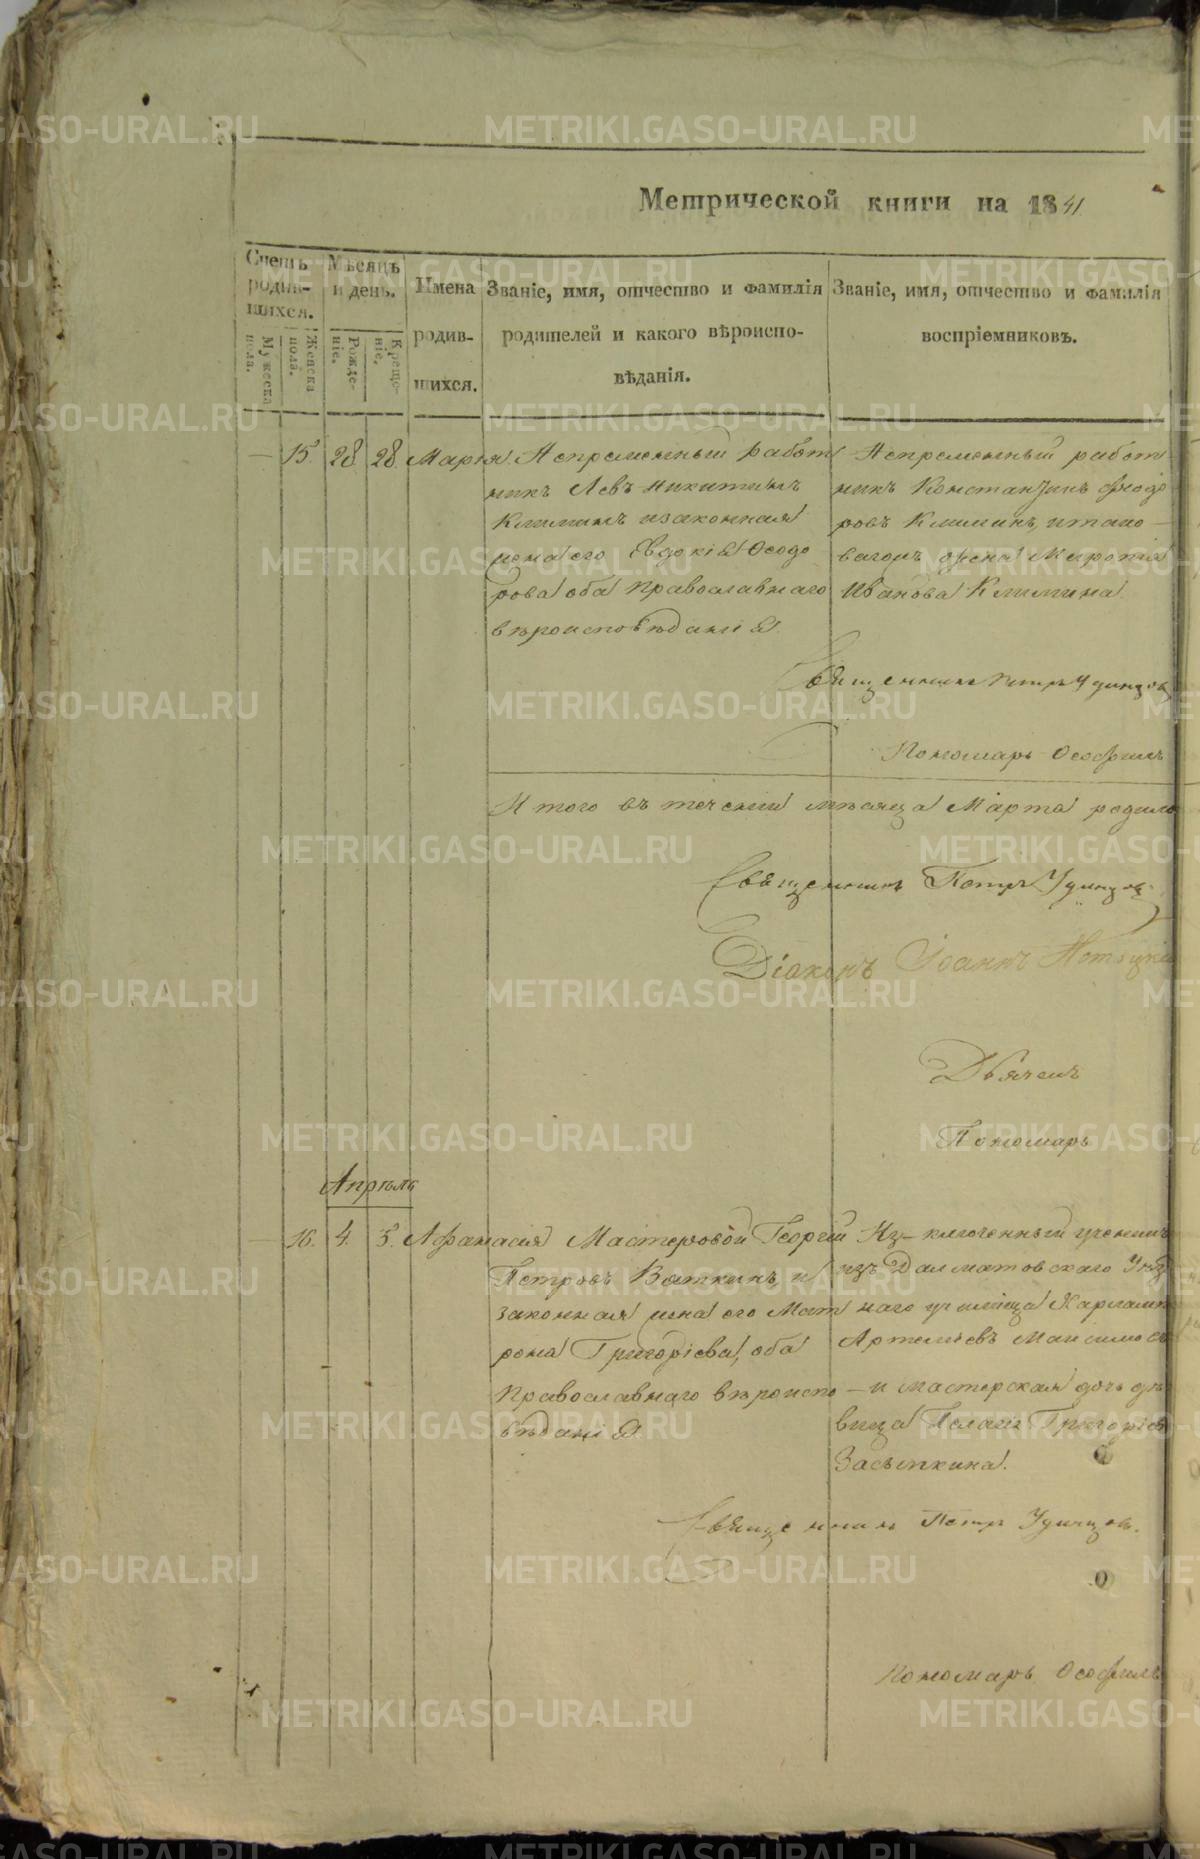 Метрической книги на 1841
Счетъ родив-шихся.
Мѣсяцъ и день.
Имена родив-шихся.
Званіе, имя, отчество и фамилія родителей и какого вѣроиспо-вѣданія.
Званіе, имя, отчество и фамилія воспріемниковъ.
Мужеска пола.
Женска пола.
Рожде-ніе.
Креще-ніе.
— 15. 28 28. Марія. Непременный работ
никъ Левъ Никитинъ
Климинъ и законная
жена его Евдокія Ѳеодо
рова оба Православнаго
вѣроисповѣданія.
Непременный работ
никъ Константинъ Феодо
ровъ Климинъ, и тако
вагожъ жена
Иванова Климина.
Священникъ Петръ Удинцов
Пономарь Ѳеофилъ
Итого въ течении мѣсяца Марта родило
Священникъ Петръ Удинцовъ
Діаконъ Іоаннъ
Дьячекъ
Пономарь
Апрѣль
— 16. 4. 5. Афанасія Мастеровой Георгий
Петровъ Вяткинъ, и
законная жена его Мат
рона Григоріева, оба
Православнаго вѣроиспо
вѣданія
Из-ключенный ученикъ
изъ Далматовскаго Уѣз
наго училища Харламп
Артемьевъ Максимов
— и мастерская дочь дѣ
вица Пелагія Григоріев
Засыпкина.
Священникъ Петръ Удинцовъ.
Пономарь Ѳеофилъ
METRIKI.GASO-URAL.RU